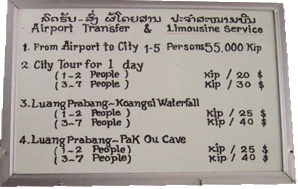 ຮັບ-ສົ່ງ ຜູ້ໂດຍສານ ປະຈຳສະໜາມບິນ
Airport Transfer & Limousine Service
1. From Airport to City 1-5 Persons 55.000 Kip
2 City Tour for 1 day
(1-2 People) Kip / 20 $
(3-7 People) Kip / 30 $
3. Luang Prabang-Koangsi Waterfall
(1-2 People) Kip / 25 $
(3-7 People) Kip / 40 $
4. Luang Prabang-Pak Ou Cave
(1-2 People) Kip / 25 $
(3-7 People) Kip / 40 $